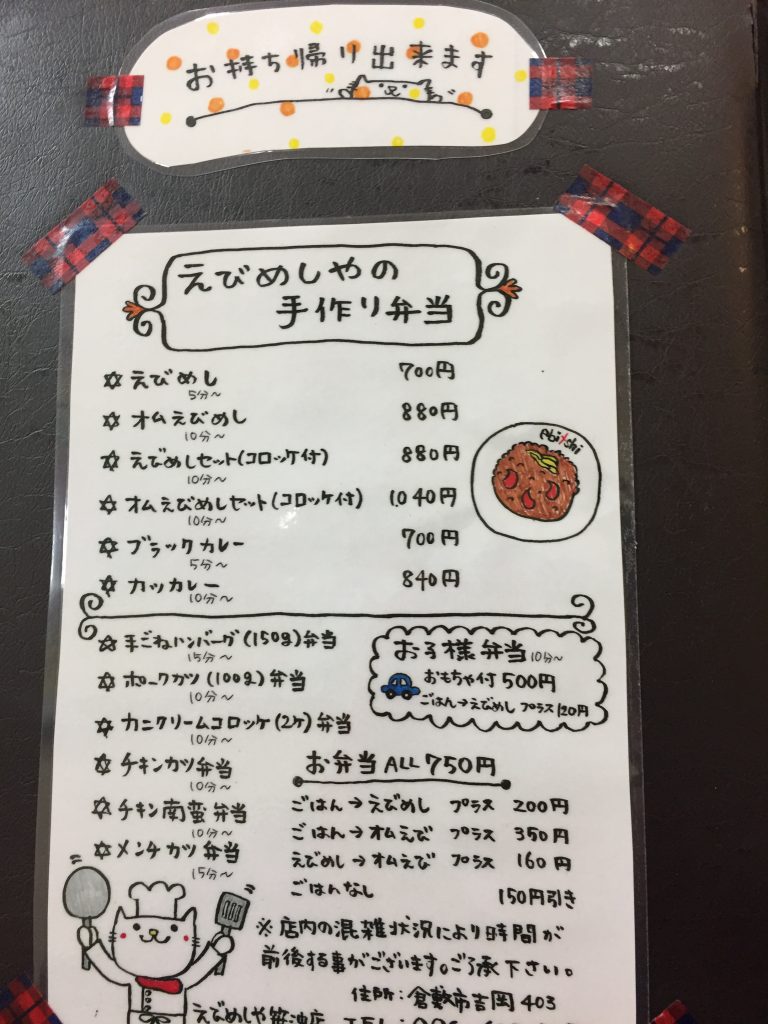 お持ち帰り出来ます
えびめしやの
手作り弁当
☆えびめし 700円
5分～
☆オムえびめし 880円
10分～
☆えびめしセット(コロッケ付) 880円
10分～
☆オムえびめしセット(コロッケ付) 1,040円
10分～
☆ブラックカレー 700円
5分～
☆カツカレー 840円
10分～
ebi
shi
☆手ごねハンバーグ(150g)弁当
15分～
☆ポークカツ(100g)弁当
10分～
☆カニクリームコロッケ(2ケ)弁当
10分～
☆チキンカツ弁当
10分～
☆チキン南蛮弁当
10分～
☆メンチカツ弁当
15分～
お子様弁当 10分～
おもちゃ付500円
ごはん→えびめし プラス120円
お弁当ALL750円
ごはん→えびめし プラス 200円
ごはん→オムえび プラス 350円
えびめし→オムえび プラス 160円
ごはんなし 150円引き
※店内の混雑状況により時間が
前後する事がございます。ご了承下さい。
住所：倉敷市吉岡403
えびめしや笹沖店